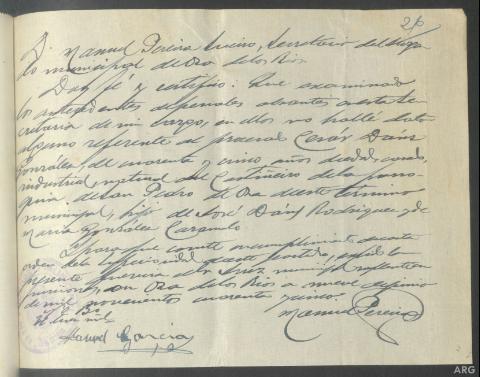 26
D. Manuel Pereira, Secretario del Juzga
do municipal de Oza de los Rios
Doy fé y certifico: Que examinado
los antecedentes penales obrantes en esta Se
cretaria de mi cargo, en ellos no hallé dato
alguno referente al procesal
González, de cuarenta y cinco años de edad, casado,
industrial, natural de la parro
quia de San Pedro de Oza de este término
municipal, hijo de José Rodriguez y de
Maria González
Y para que conste en cumplimiento de carta
orden de la superioridad
presente del Sr. Juez municipal
funciones, en Oza de los Rios a nueve de junio
de mil novecientos cuarenta y cinco.
Vº Bº
El Juez mpl.
Manuel Pereira
Manuel García
ARG